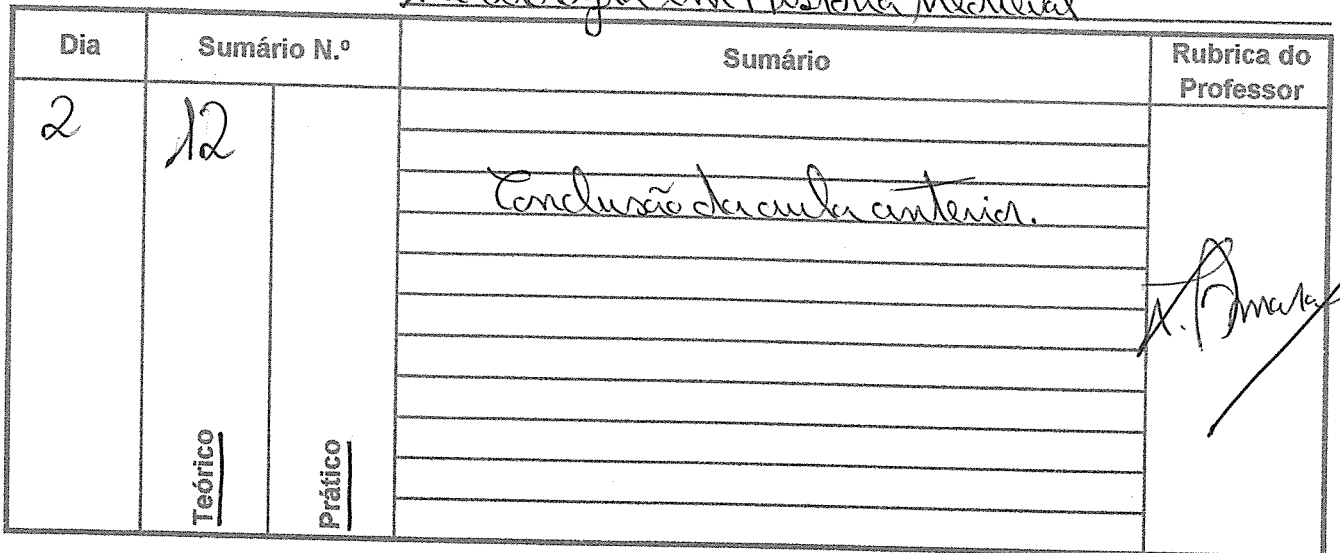 em História Medieval
Dia Sumário N.º Sumário Rubrica do Professor
2 12
Conclusão da aula anterior.
Teórico Prático